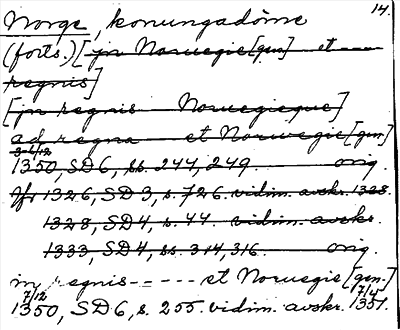 Norge, konungadöme 14.
(forts.) [jn Norwegie[gen] et ----
regnis]
[jn regnis Norwegieque]
ad regna et Norwegie [gen]
3-6/12
1350, SD6, ss. 244, 249. orig.
Jfr 1326, SD3, s. 726. vidim. avskr. 1328.
1328, SD4, s. 44. vidim. avskr.
1333, SD4, ss. 314, 316. orig.
in regnis ----- et Norwegie [gen.]
7/12 7/4
1350, SD6, s. 255. vidim. avskr. 1351.